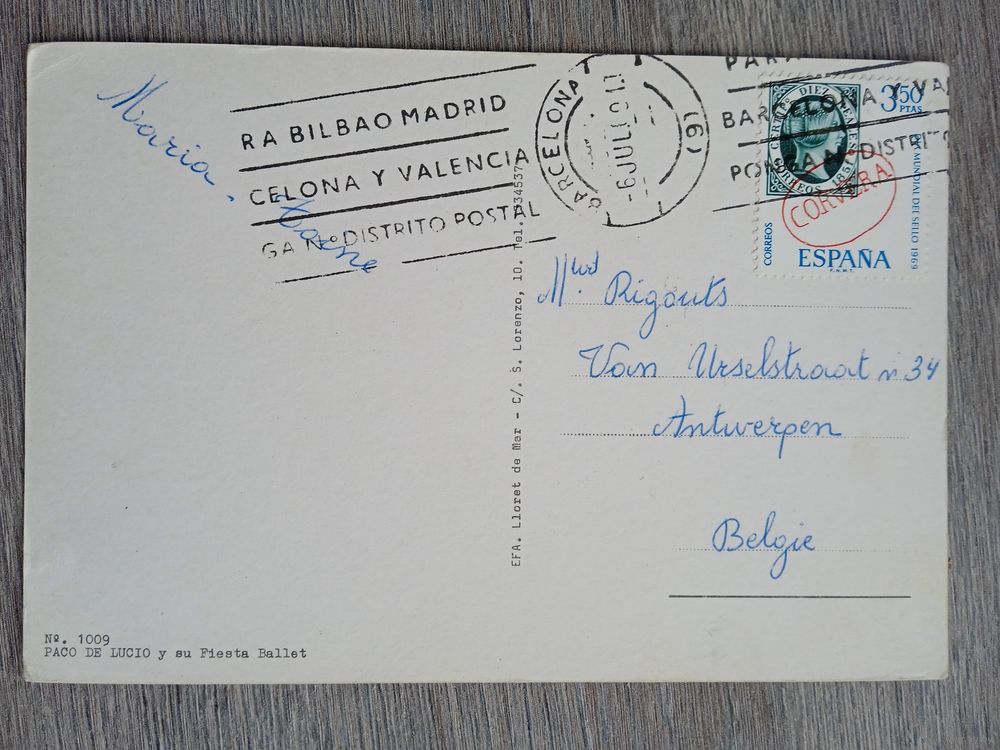 Maria.
RA BILBAO MADRID
CELONA Y VALENCIA
GA Nº DISTRITO POSTAL
BARCELONA
(6)
PARA
BARCELONA Y VA
PONGA Nº DISTRITO
3,50
PTAS
CERTDO DIEZ
CORREOS 1851
CORVERA
DIA MUNDIAL DEL SELLO 1969
CORREOS
ESPAÑA
F.N.M.T.
Rigouts
Van Urselstraat n 34
Antwerpen
Belgie
EFA. Lloret de Mar - C/. S. Lorenzo, 10. Tel. 334537
Nº. 1009
PACO DE LUCIO y su Fiesta Ballet